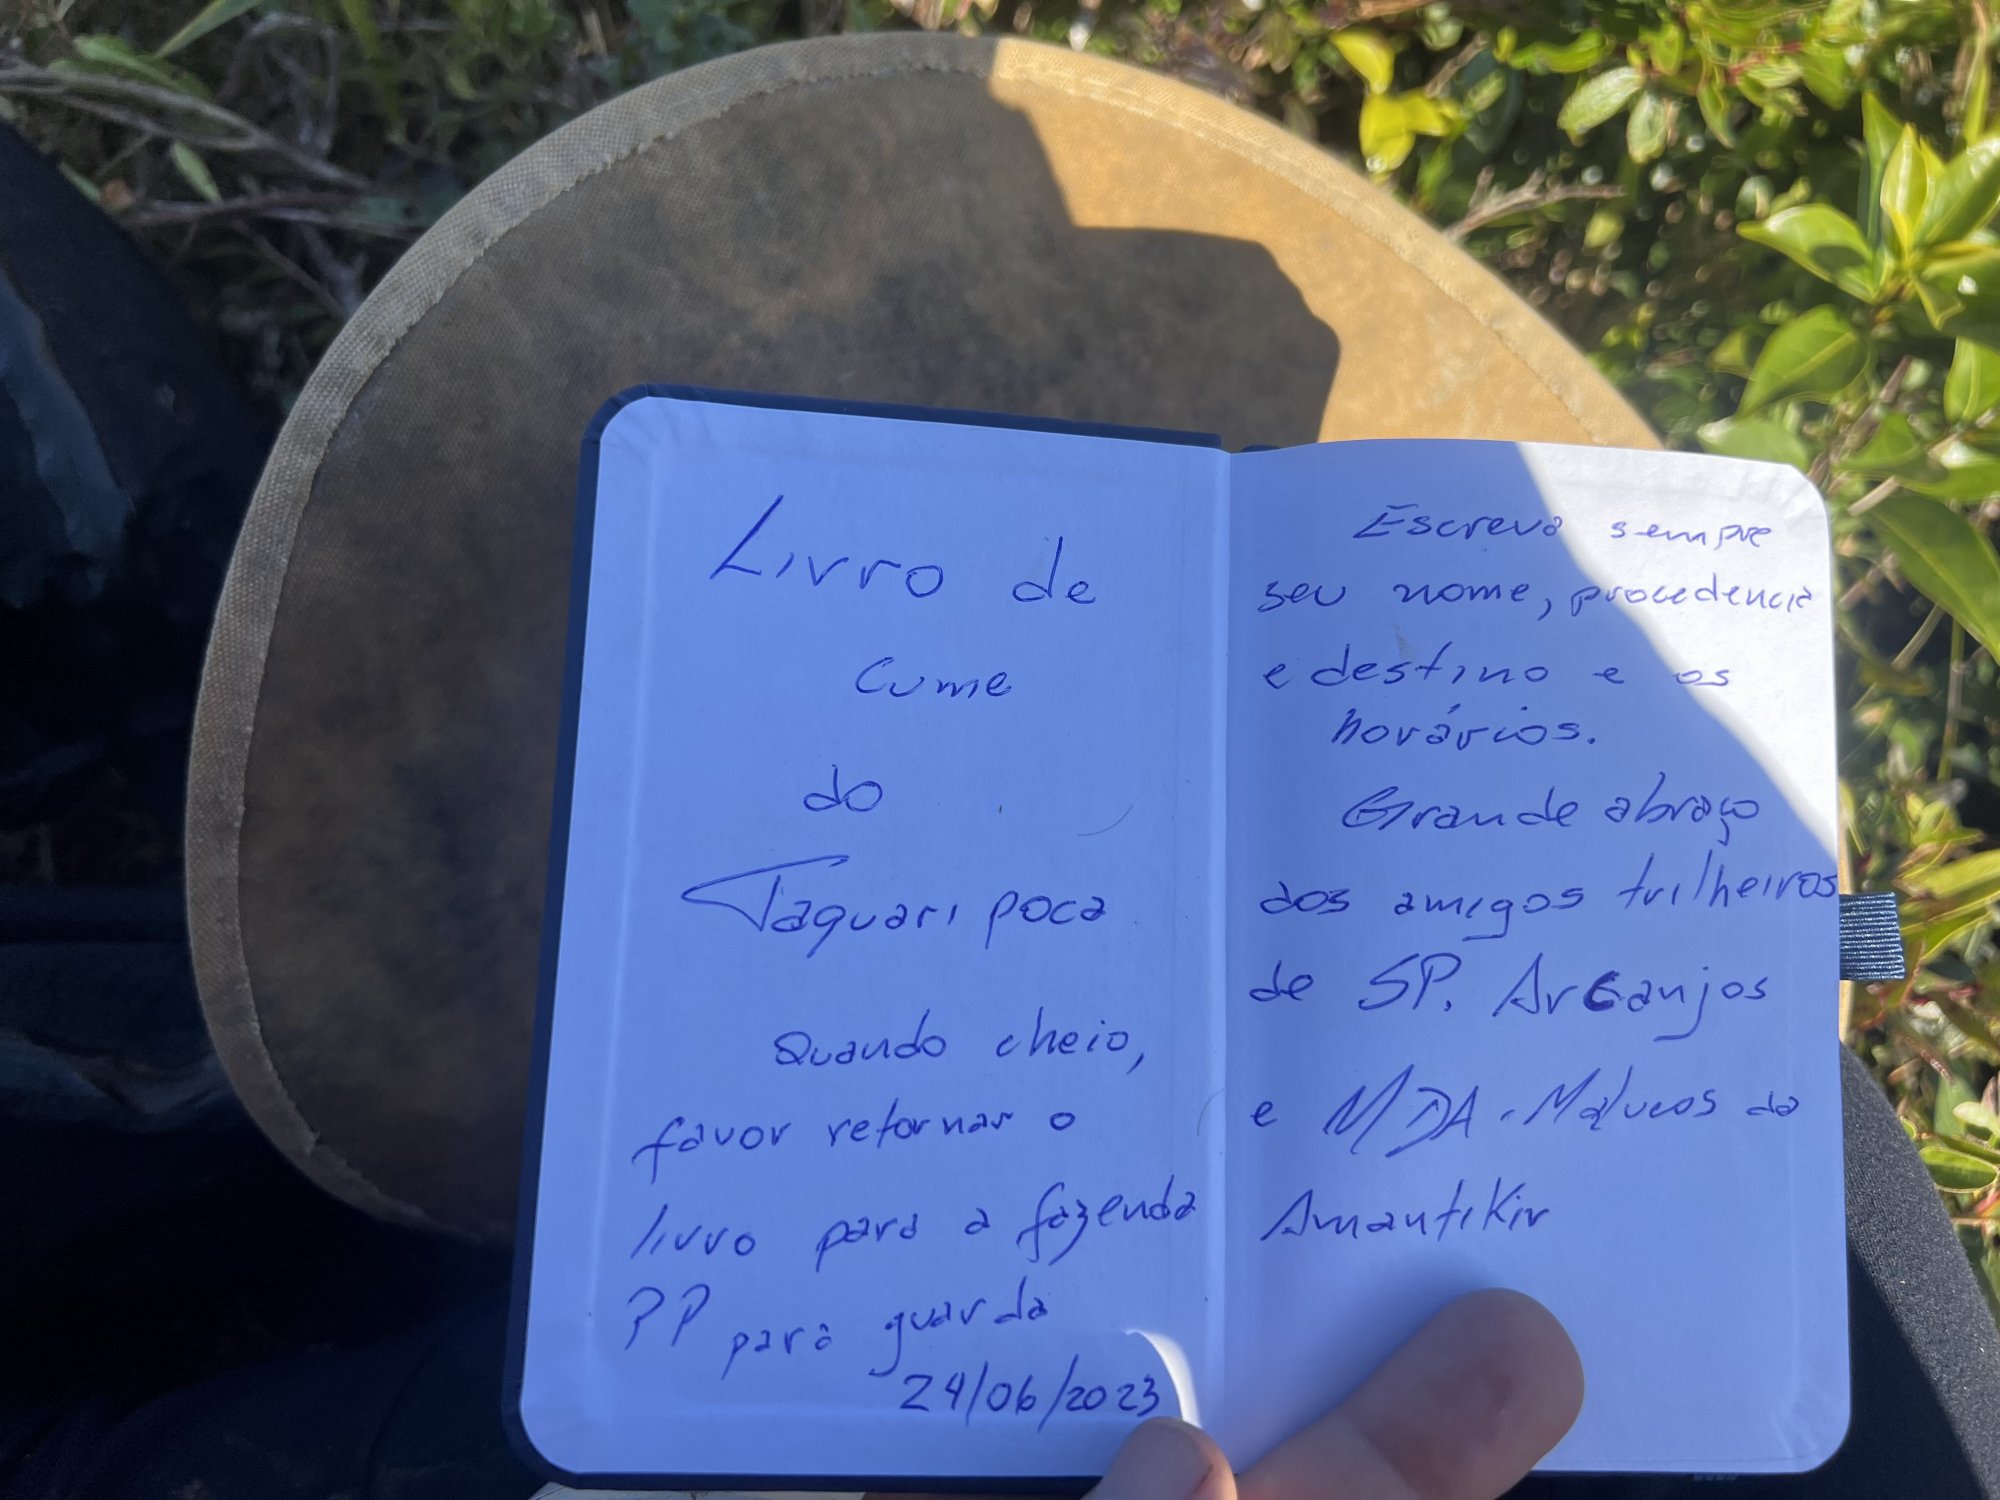 Livro de
cume
do
Taquaripoca
Quando cheio,
favor retornar o
livro para a fazenda
PP para guarda
24/06/2023
Escreva sempre
seu nome, procedencia
e destino e os
horários.
Grande abraço
dos amigos trilheiros
de SP. Arcanjos
e MDA. Malucos da
Amantikir